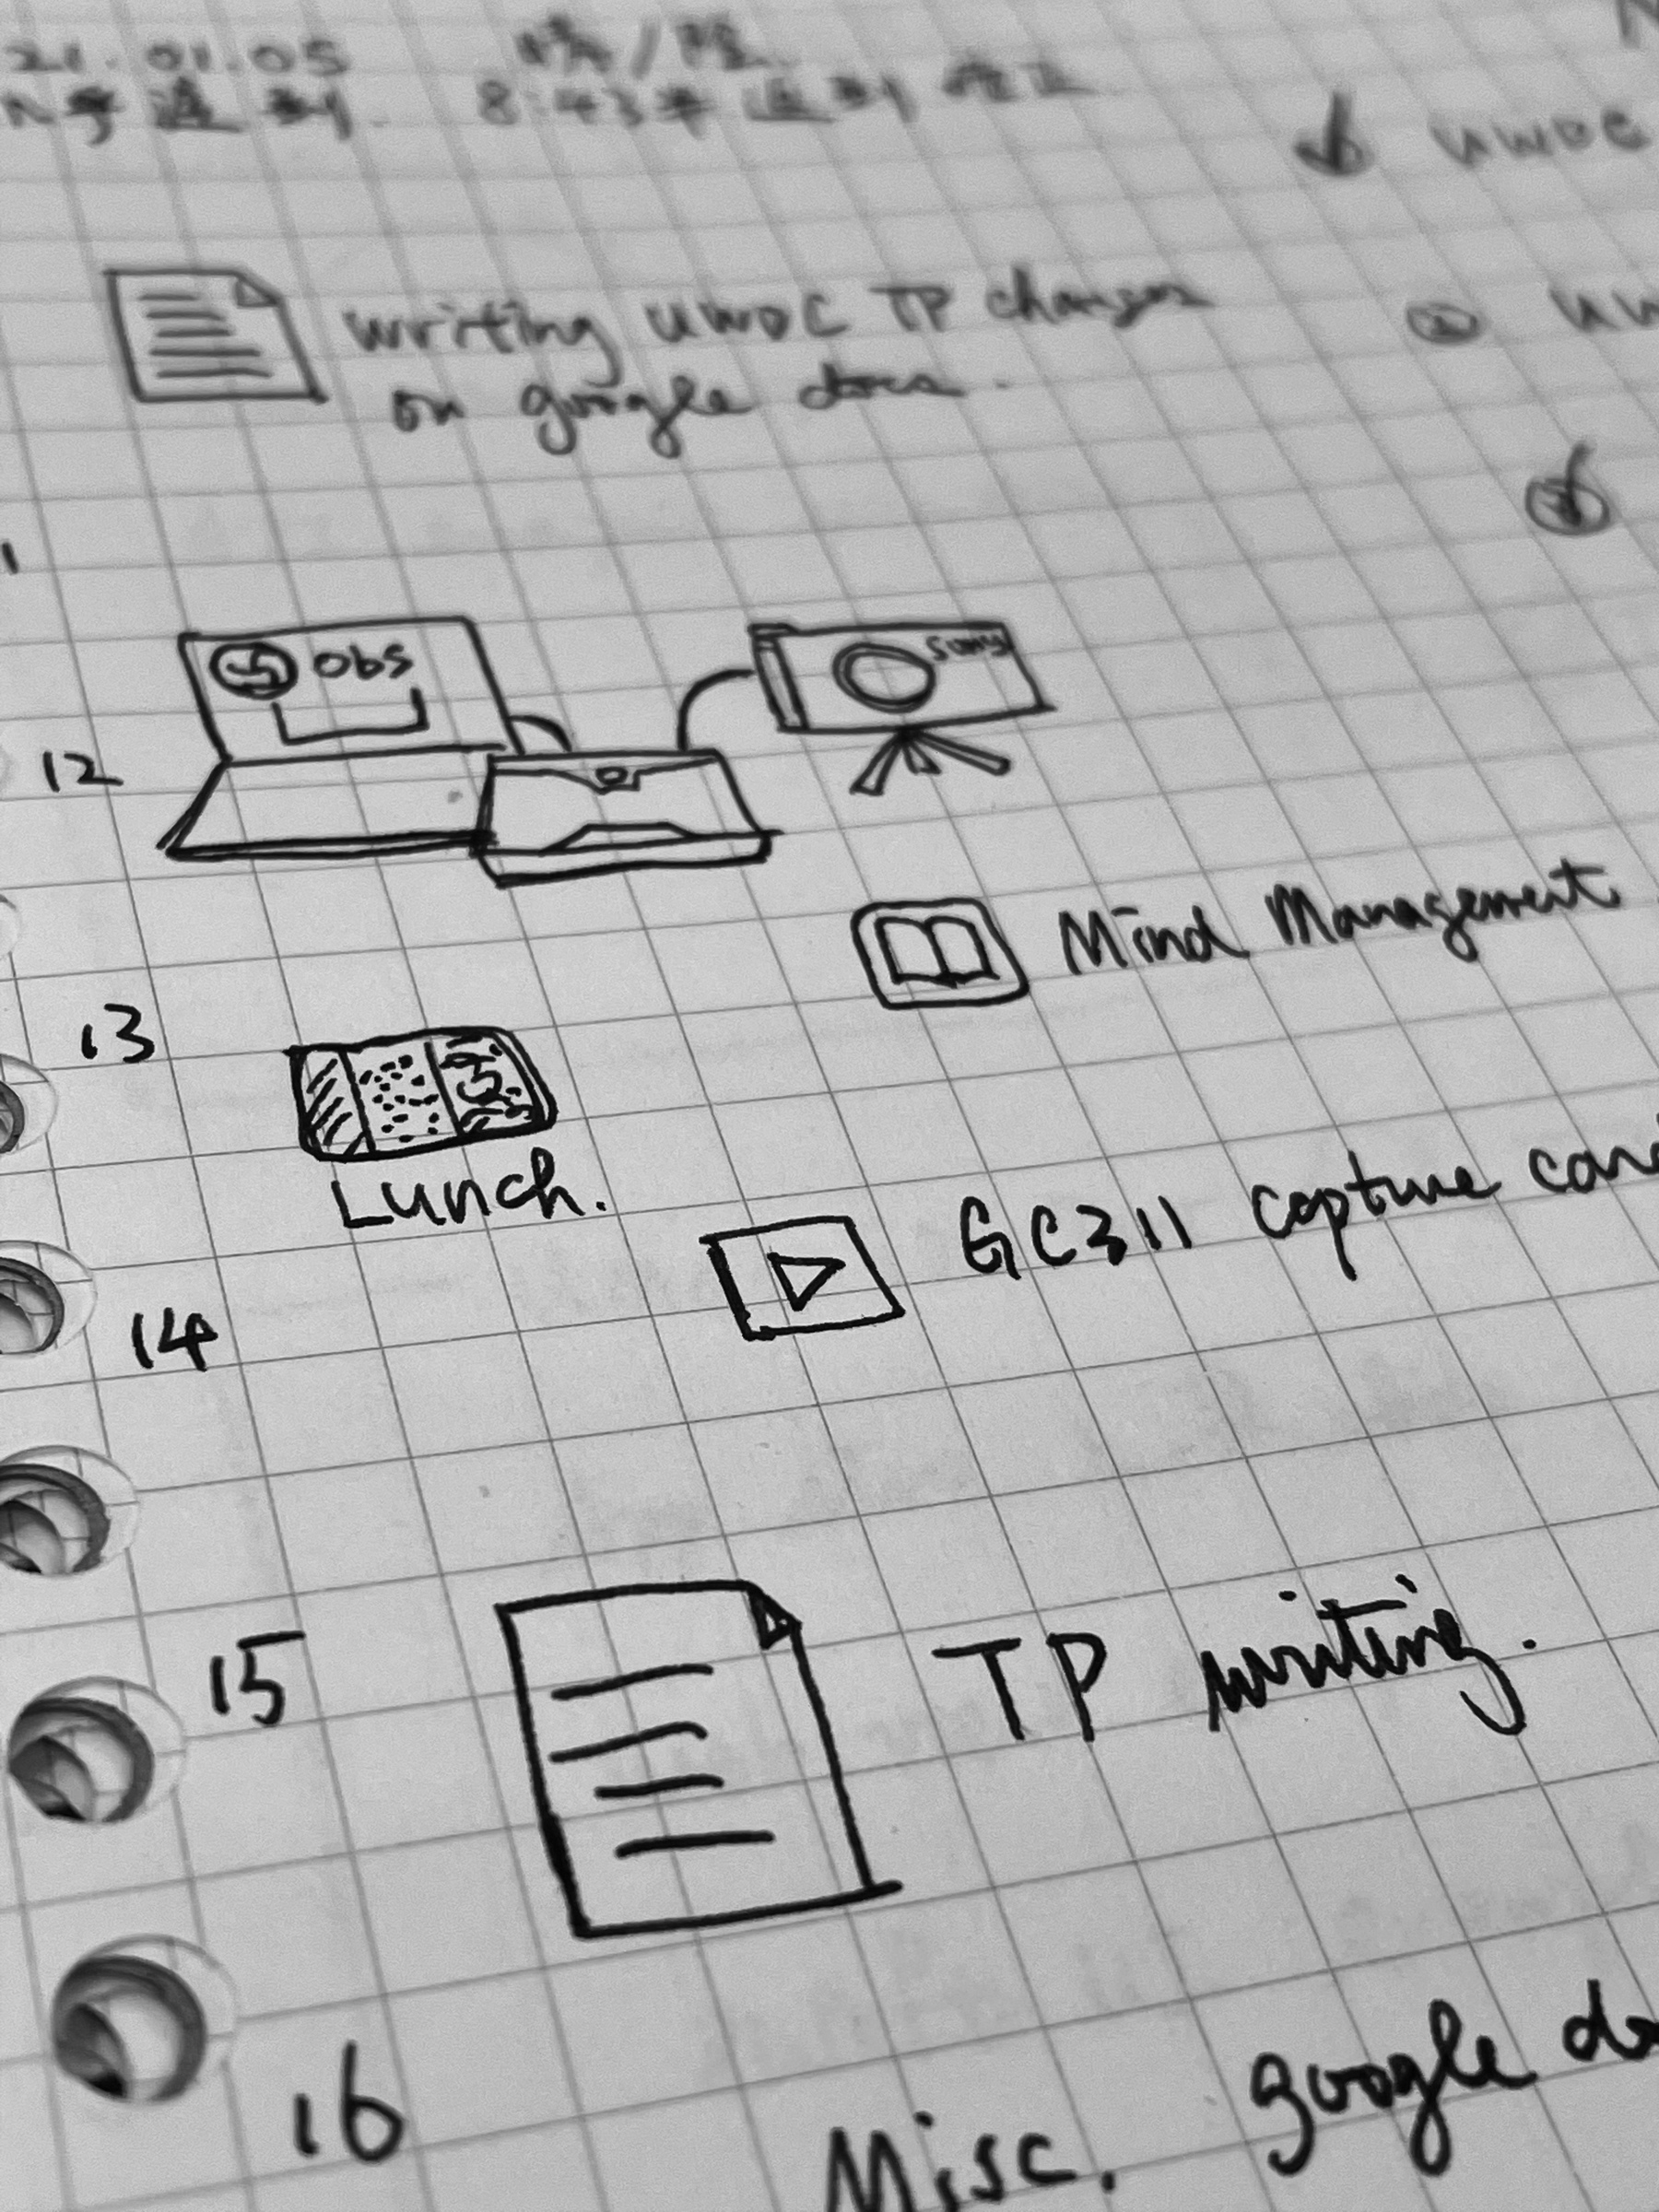 21.01.05
8:43
UWDC
writing UWDC TP changes
on google docs.
12
obs
sony
Mind Management
13
Lunch.
GC311 capture
14
15
TP writing.
16
Misc. google